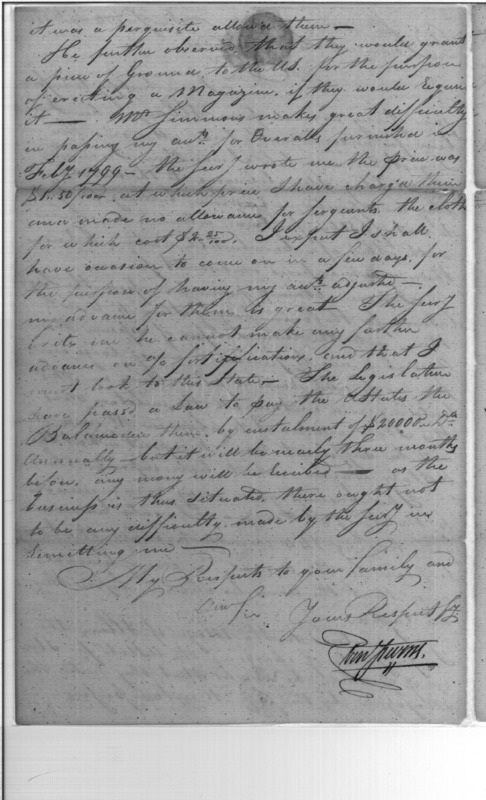 it was a perquisite allow'd them —
He further observed that they would grant
a piece of Ground to the US. for the purpose
of erecting a Magazine. if they would require
it — Mr Simmons makes great difficulty
in passing my acct. for Overalls furnished in
Feby 1799 — the Secy wrote me the price was
$1. 50/100. at which price I have charg'd them
and made no allowance for Sergeants. the cloth
for which cost $2 25/100. I expect I shall
have occasion to come on in a few days. for
the purpose of having my accts. adjusted —
my advance for them is great The Secy
write me he cannot make any farther
advance on a/c fortifications. and that I
must look to this State — The Legislature
have pass'd a Law to pay the U States the
Balance due them. by instalment of $20000
Annually — but it will be nearly three months
before any money will be Received — as the
business is thus Situated, there ought not
to be any difficulty made by the Secy in
Remitting me —
My Respects to your family and
am Sir Yours Respectfy
Eben Stevens.